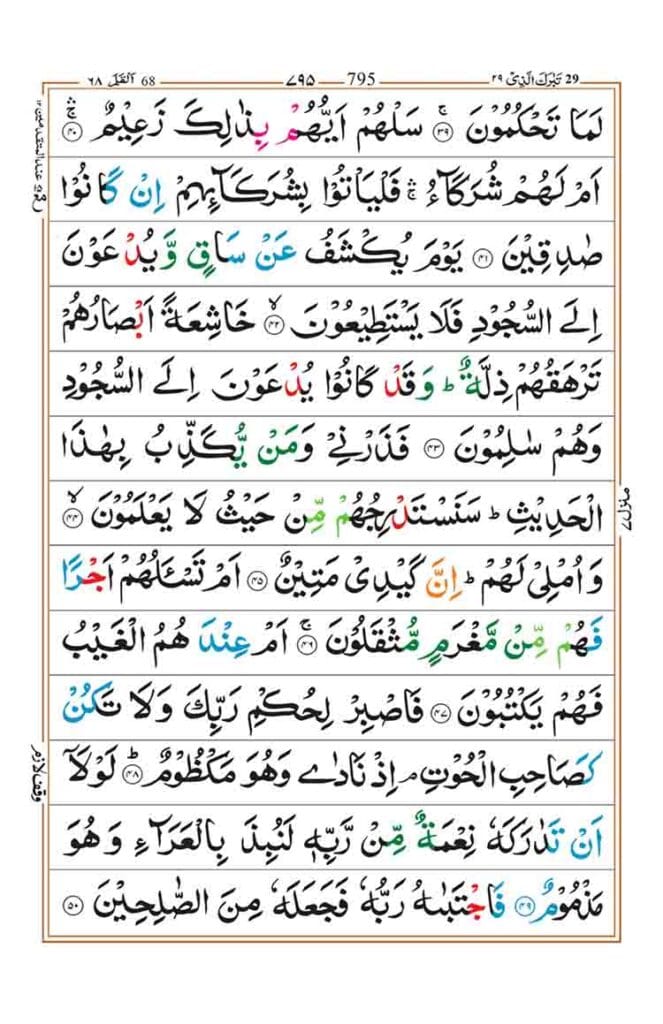 ٦٨ اَلْقَلَم 68 ٧٩٥ 795 تَبٰرَكَ الَّذِیْ ٢٩ 29
لَمَا تَحْكُمُوْنَ ۚ‏﴿۳۹﴾ سَلْهُمْ اَيُّهُمْ بِذٰلِكَ زَعِيْمٌ ۚۛ‏﴿۴۰﴾
اَمْ لَهُمْ شُرَكَآءُ ۚۛ فَلْيَاْتُوْا بِشُرَكَآئِهِمْ اِنْ كَانُوْا
صٰدِقِيْنَ ‏﴿۴۱﴾ يَوْمَ يُكْشَفُ عَنْ سَاقٍ وَّ يُدْعَوْنَ
اِلَى السُّجُوْدِ فَلَا يَسْتَطِيْعُوْنَ ۙ‏﴿۴۲﴾ خَاشِعَةً اَبْصَارُهُمْ
تَرْهَقُهُمْ ذِلَّةٌ ؕ وَ قَدْ كَانُوْا يُدْعَوْنَ اِلَى السُّجُوْدِ
وَهُمْ سٰلِمُوْنَ ‏﴿۴۳﴾ فَذَرْنِيْ وَمَنْ يُّكَذِّبُ بِهٰذَا
الْحَدِيْثِ ؕ سَنَسْتَدْرِجُهُمْ مِّنْ حَيْثُ لَا يَعْلَمُوْنَ ۙ‏﴿۴۴﴾
وَ اُمْلِيْ لَهُمْ ؕ اِنَّ كَيْدِيْ مَتِيْنٌ ‏﴿۴۵﴾ اَمْ تَسْـَٔلُهُمْ اَجْرًا
فَهُمْ مِّنْ مَّغْرَمٍ مُّثْقَلُوْنَ ۚ‏﴿۴۶﴾ اَمْ عِنْدَ هُمُ الْغَيْبُ
فَهُمْ يَكْتُبُوْنَ ‏﴿۴۷﴾ فَاصْبِرْ لِحُكْمِ رَبِّكَ وَلَا تَكُنْ
كَصَاحِبِ الْحُوْتِ ۘ اِذْ نَادٰى وَهُوَ مَكْظُوْمٌ ؕ‏﴿۴۸﴾ لَوْلَاۤ
اَنْ تَدٰرَكَهٗ نِعْمَةٌ مِّنْ رَّبِّهٖ لَنُبِذَ بِالْعَرَآءِ وَ هُوَ
مَذْمُوْمٌ ‏﴿۴۹﴾ فَاجْتَبٰىهُ رَبُّهٗ فَجَعَلَهٗ مِنَ الصّٰلِحِيْنَ ‏﴿۵۰﴾
منزل ٧
وقف لازم